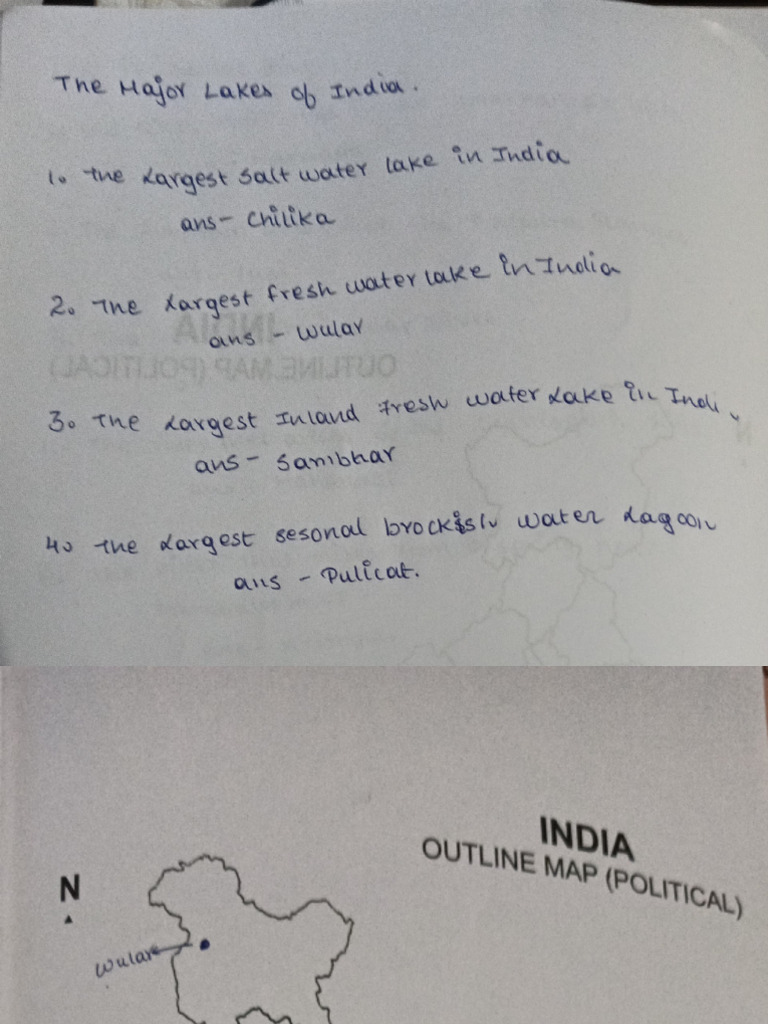 The Major Lakes of India.
1. The Largest Salt water lake in India
ans- Chilika
2. The Largest fresh water lake in India
ans - Wular
3. The Largest Inland fresh water Lake in Indi
ans- Sambhar
4. The Largest sesonal brockish water Lagoon
ans - Pulicat.
INDIA
OUTLINE MAP (POLITICAL)
N
Wular